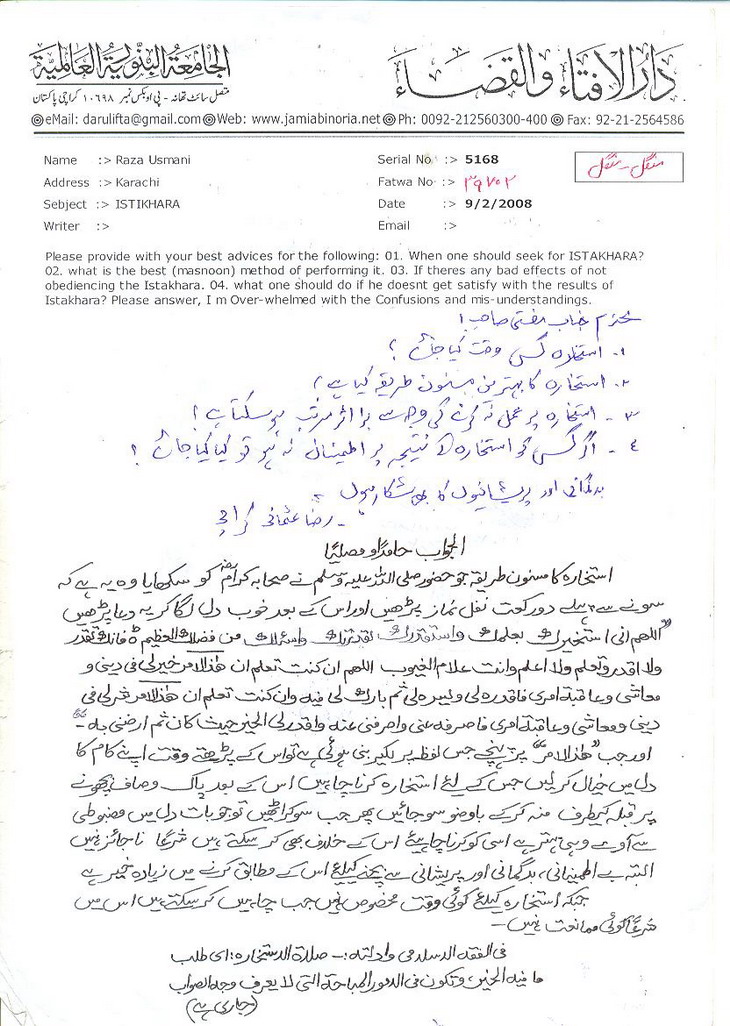 الجامعة البنورية العالمية
دار الافتاء والقضاء
متصل سائٹ تھانہ - پی او بکس نمبر ۱۰۶۹۸ کراچی پاکستان
eMail: darulifta@gmail.com Web: www.jamiabinoria.net Ph: 0092-212560300-400 Fax: 92-21-2564586
Name :> Raza Usmani
Serial No :> 5168
منگل - منگل
Address :> Karachi
Fatwa No :> ۳۹۷۰۲
Sebject :> ISTIKHARA
Date :> 9/2/2008
Writer :>
Email :>
Please provide with your best advices for the following: 01. When one should seek for ISTAKHARA?
02. what is the best (masnoon) method of performing it. 03. If theres any bad effects of not
obediencing the Istakhara. 04. what one should do if he doesnt get satisfy with the results of
Istakhara? Please answer, I m Over-whelmed with the Confusions and mis-understandings.
محترم جناب مفتی صاحب!
۱۔ استخارہ کس وقت کیا جائے؟
۲۔ استخارہ کا بہترین مسنون طریقہ کیا ہے؟
۳۔ استخارہ پر عمل نہ کرنے کی وجہ سے برا اثر مرتب ہو سکتا ہے؟
٤۔ اگر کسی کو استخارہ کے نتیجہ پر اطمینان نہ ہو تو کیا کیا جائے؟
بدگمانی اور پریشانیوں کا بھی شکار ہوں
۔ رضا عثمانی کراچی
الجواب حامدًا و مصلیًا
استخارہ کا مسنون طریقہ جو حضور صلی اللہ علیہ وسلم نے صحابہ کرامؓ کو سکھایا وہ یہ ہے کہ
سونے سے پہلے دو رکعت نفل نماز پڑھیں اور اس کے بعد خوب دل لگا کر یہ دعا پڑھیں
"اللهم انی استخیرک بعلمک واستقدرک بقدرتک واسئلک من فضلک العظیم فانک تقدر
ولا اقدر وتعلم ولا اعلم وانت علام الغیوب اللهم ان کنت تعلم ان هذا الامر خیر لی فی دینی و
معاشی وعاقبة امری فاقدره لی ویسره لی ثم بارک لی فیه وان کنت تعلم ان هذا الامر شر لی فی
دینی ومعاشی وعاقبة امری فاصرفه عنی واصرفنی عنه واقدر لی الخیر حیث کان ثم ارضنی به"
اور جب "هذا الامر" پر پہنچے جس لفظ پر لکیر بنی ہوئی ہے تو اس کے پڑھتے وقت اپنے کام کا
دل میں خیال کر لیں جس کے لئے استخارہ کرنا چاہیں اس کے بعد پاک و صاف بچھونے
پر قبلہ کیطرف منہ کر کے باوضو سو جائیں پھر جب سو کر اٹھیں تو جو بات دل میں مضبوطی
سے آوے وہی بہتر ہے اسی کو کرنا چاہیئے اس کے خلاف بھی کر سکتے ہیں شرعًا ناجائز نہیں
البتہ بے اطمینانی، بدگمانی اور پریشانی سے بچنے کیلئے اس کے مطابق کرنے میں زیادہ خیر ہے
جبکہ استخارہ کیلئے کوئی وقت مخصوص نہیں جب چاہیں کر سکتے ہیں اس میں
شرعًا کوئی ممانعت نہیں۔
فی الفقه الاسلامی وادلته :- صلاة الاستخارة: ای طلب
ما فیه الخیر وتکون فی الامور المباحة التی لا یعرف وجه الصواب
(جاری ہے)